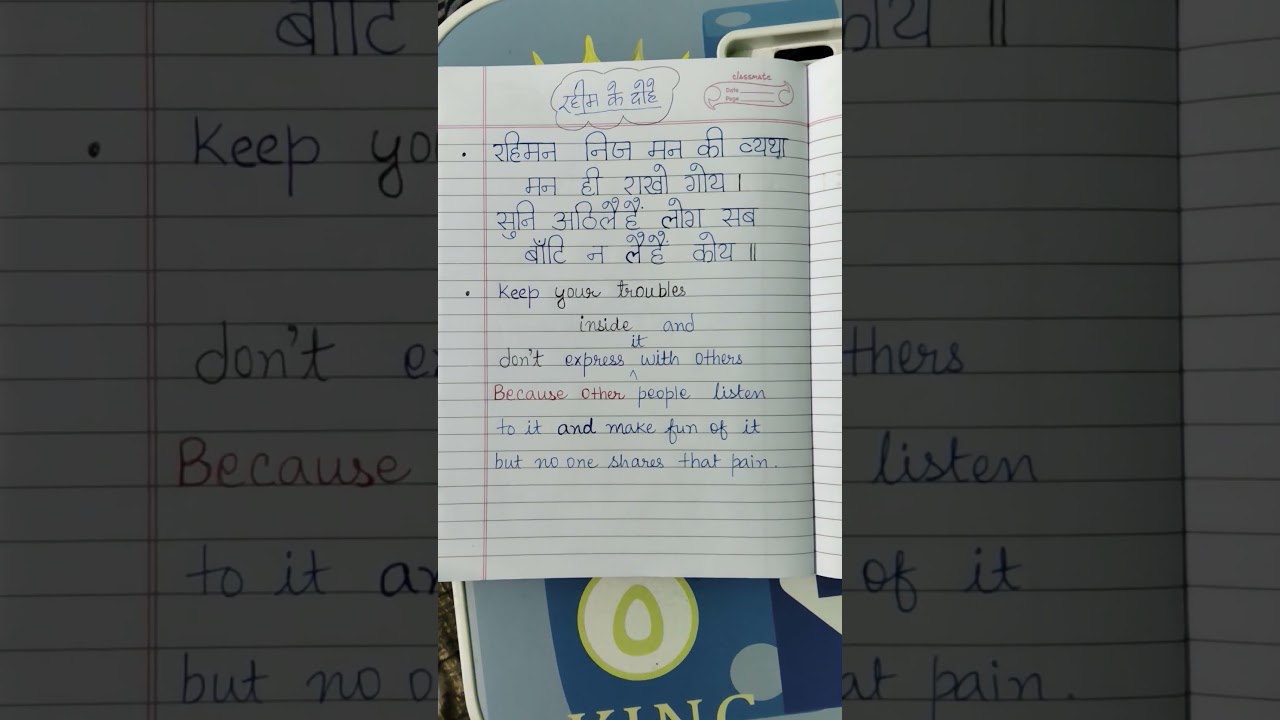 रहीम के दोहे
classmate
Date
Page
रहिमन निज मन की व्यथा
मन ही राखो गोय।
सुनि अठिलैहैं लोग सब
बाँटि न लैहैं कोय॥
Keep your troubles
inside and
it
don't express ^ with others
Because other people listen
to it and make fun of it
but no one shares that pain.
KING